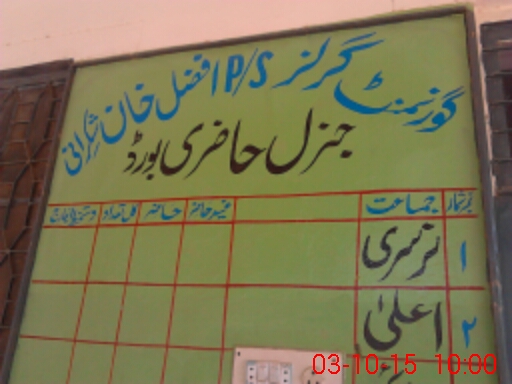 گورنمنٹ گرلز P/S افضل خان شراتی
جنرل حاضری بورڈ
نمبرشمار جماعت غیرحاضر حاضر کل تعداد
۱ نرسری
۲ اعلیٰ
03-10-15 10:00